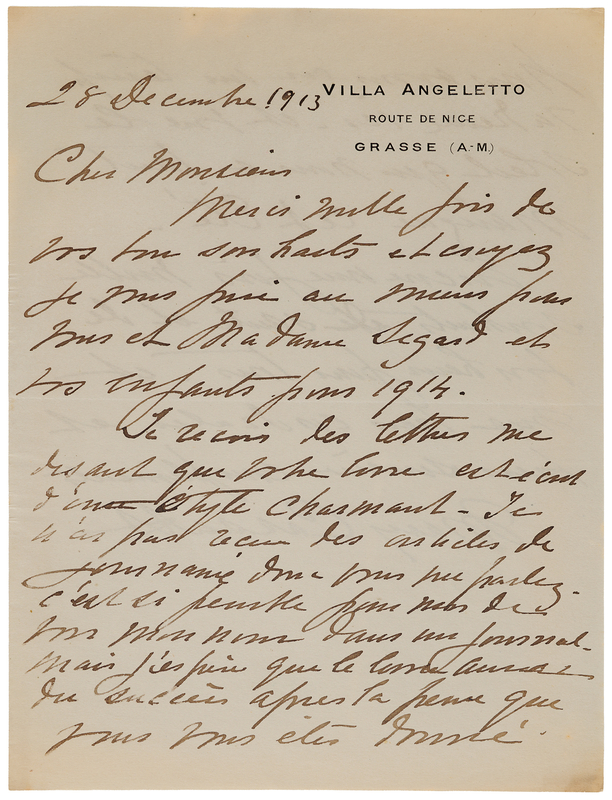 28 Decembre 1913
VILLA ANGELETTO
ROUTE DE NICE
GRASSE (A.-M.)
Cher Monsieur
Merci mille fois de
vos bon souhaits et croyez
je vous prie au miens pour
vous et Madame Segard et
vos enfants pour 1914.
Je recois des lettres me
disant que votre livre est écrit
d'une style charmant - Je
n'ai pas recu des articles de
journaux donc vous me parlez.
c'est si penible pour moi de
voir mon nom dans un journal -
mais j'espère que le livre aura
du succès apres la peine que
vous vous êtes donné.